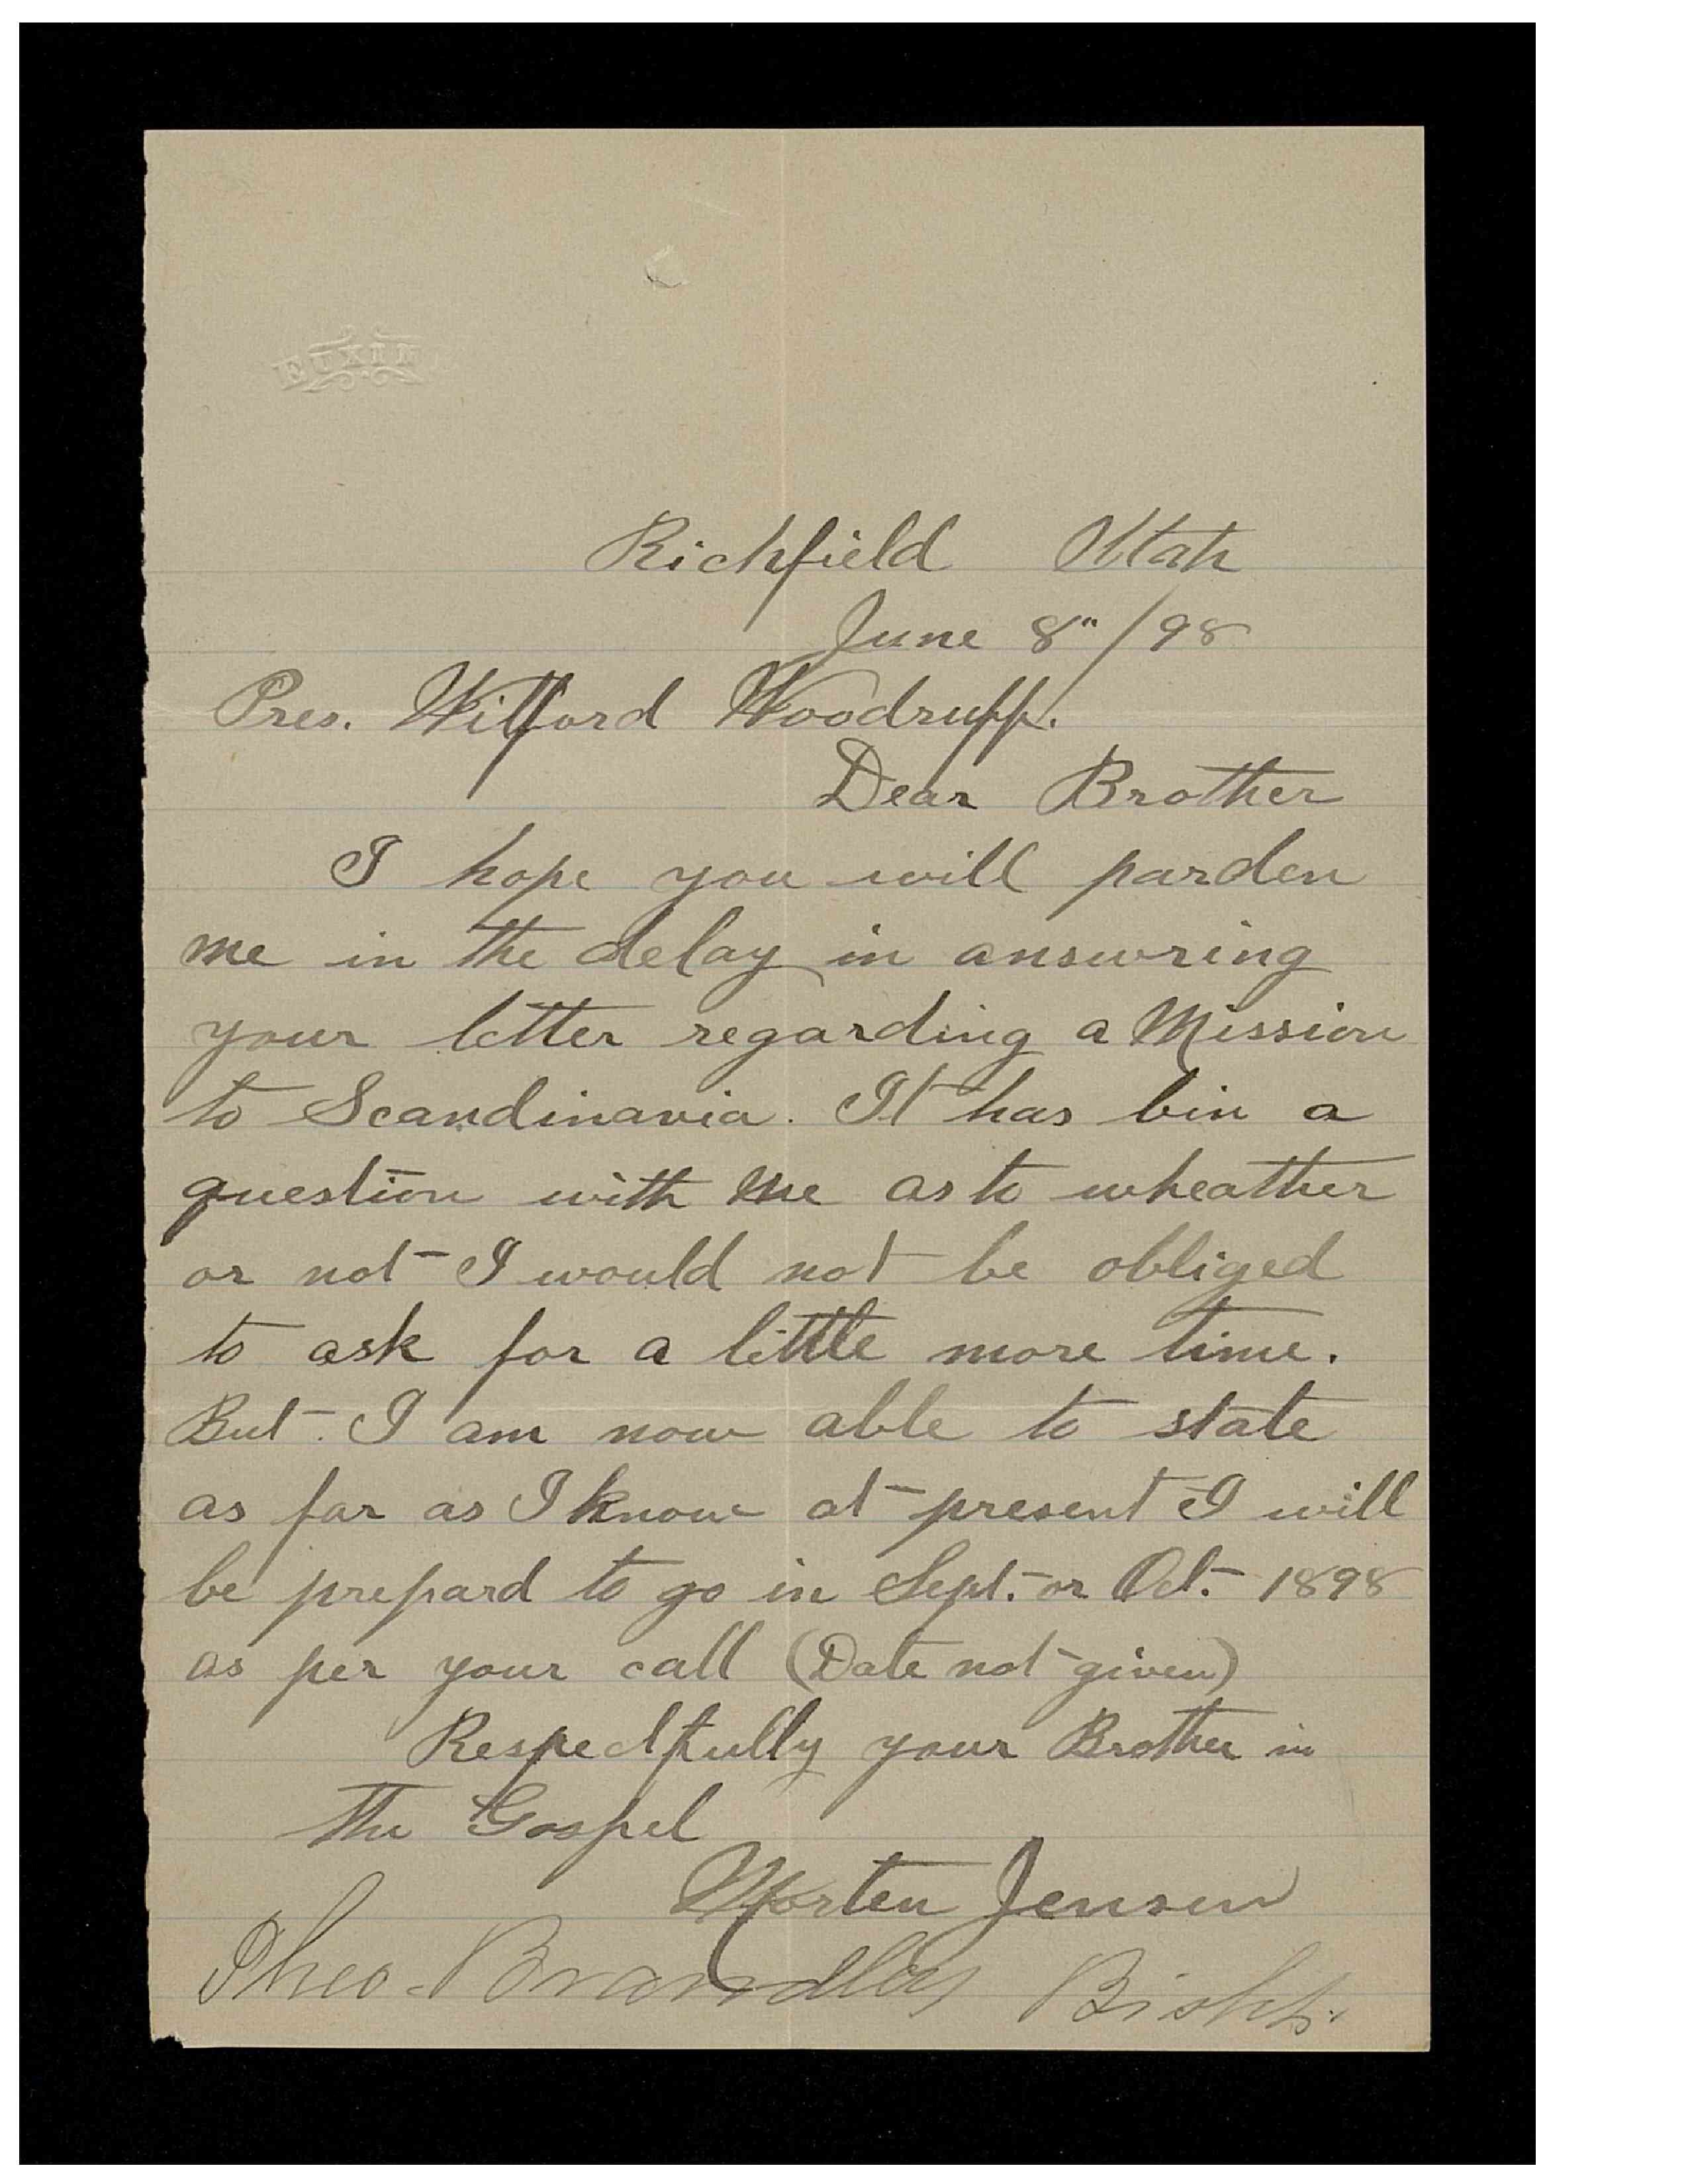 EUXIN
Richfield Utah
June 8"/98
Pres. Wilford Woodruff.
Dear Brother
I hope you will parden
me in the delay in answring
your letter regarding a Mission
to Scandinavia. It has bin a
question with me as to wheather
or not I would not be obliged
to ask for a little more time.
But I am now able to state
as far as I know at present I will
be prepard to go in Sept. or Oct. 1898
as per your call (Date not given)
Respectfully your Brother in
the Gospel
Morten Jensen
Theo. Brandley Bishp.